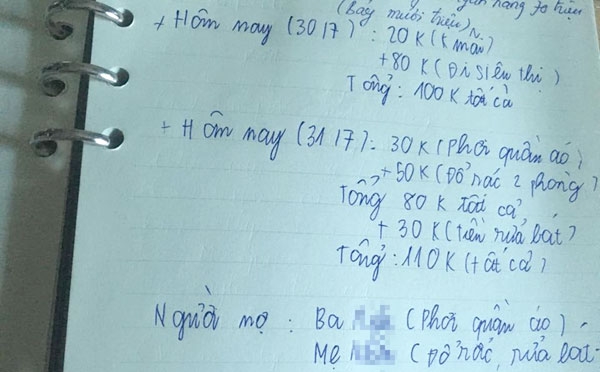 hàng 70 triệu
(Bảy mươi triệu)
+ Hôm nay (30/7): 20 K (K mãi)
+80 K (Đi siêu thị)
Tổng: 100 K tất cả
+ Hôm nay (31/7): 30 K (Phơi quần áo)
+ 50 K (Đổ rác 2 phòng)
Tổng 80 K tất cả
+ 30 K (tiền rửa bát)
Tổng: 110 K (tất cả)
Người nợ: Ba (Phơi quần áo)
Mẹ (Đổ rác, rửa bát